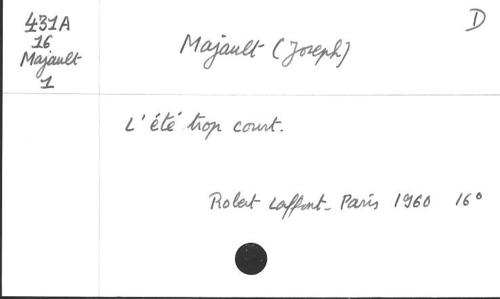 431A
16
Majault
1
D
Majault (Joseph)
L'été trop court.
Robert Laffont - Paris 1960 16°